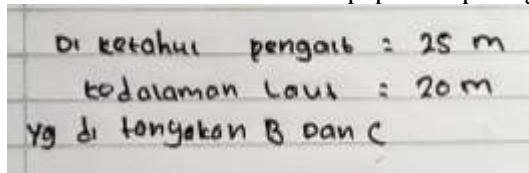 Di ketahui pengait = 25 m
kedalaman Laut = 20 m
Yg di tanyakan B Dan C